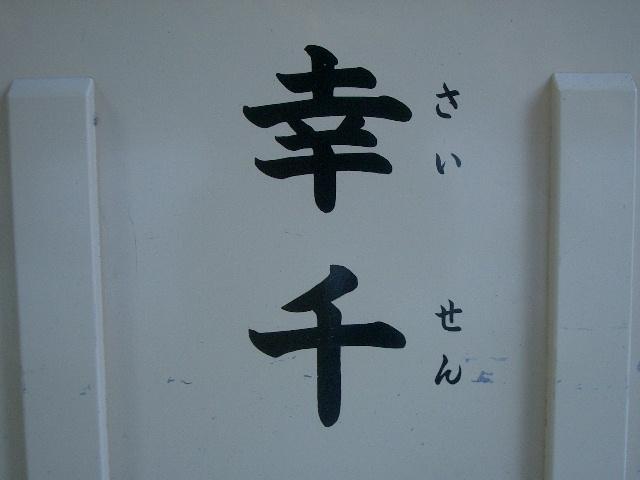 幸千
さいせん